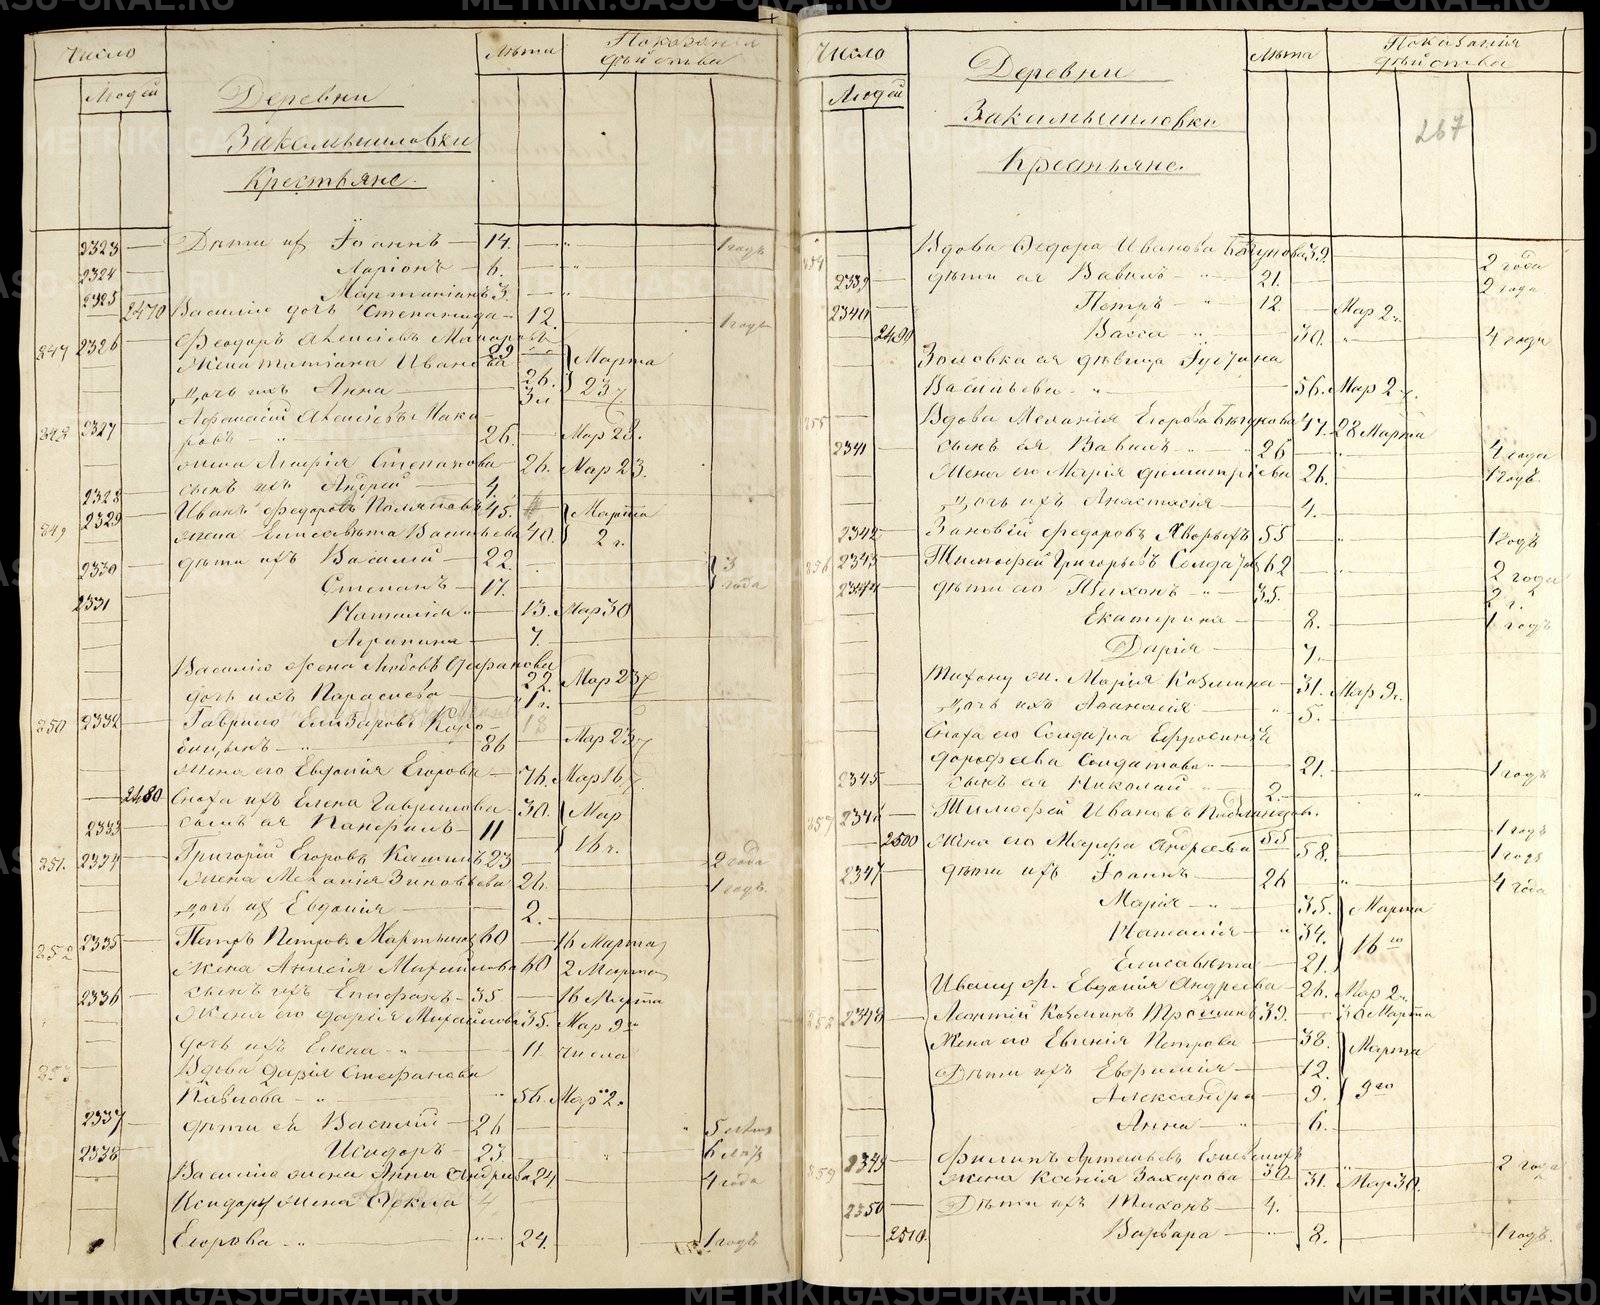 Число
Людей
Лѣта
Показанія
дѣйства
Деревни
Закамышловки
Крестьяне.
2323 Дѣти их Іоаннъ 14. 1 годъ
2324 Ларіонъ 6.
2325 Мартиніанъ 3.
2470 Василію дочь Степанида 12. 1 годъ
847 2326 Феодоръ Алексѣевъ Макаровъ 29
Жена Татіана Иванова 26. Марта
дочь ихъ Анна 3 23
848 2327 Афанасій Алексѣевъ Мака-
ровъ 26. Мар 23.
жена Марѳія Степанова 26. Мар 23.
2328 сынъ ихъ Андрей 4.
849 2329 Иванъ Федоровъ 45. Марта
жена Елисавѣта Васильева 40. 2
2330 дѣти ихъ Василій 22. 3
2331 Степанъ 17. года
Наталія 13. Мар 30
Агрипина 7.
Василію жена Любовь Стефанова
22. Мар 23
дочь ихъ Параскева 1 г.
850 2332 Гаврило Елизаровъ Коро-
бицынъ 86 Мар 23
Жена его Евдокія Егорова 76. Мар 16
2480 Сноха ихъ Елена Гаврилова 30. Мар
2333 сынъ ея Панфилъ 11 16 г.
851. 2334 Григорій Егоровъ 23 2 года
Жена Меланія Зиновьева 26. 1 годъ
дочь их Евдокія 2.
852 2335 Петръ Петровъ Мартыновъ 60 16 Марта
Жена Анисія Михайлова 60 2 Марта
2336 сынъ ихъ Епифанъ 35 16 Марта
Жена его Дарія Михайлова 35. Мар 9
дочь ихъ Елена 11 числа
853 Вдова Дарія Стефанова
Павлова 56. Мар 2.
2337 дѣти ея Василій 26 5 лѣтъ
2338 Исидоръ 23 6 лѣтъ
Василію жена Анна Андреева 24 4 года
Исидору жена Ѳекла
Егорова 24. 1 годъ
Число
Людей
Лѣта
Показанія
дѣйства
Деревни
Закамышловки
Крестьяне.
267
854 Вдова Федора Иванова 39. 2 года
2339 дѣти ея Вавилъ 21. 2 года
2340 Петръ 12. Мар 2
2490 Васса 30. 4 года
Золовка ея дѣвица Іустина
Васильева 56. Мар 2
855 Вдова Меланія Егорова 47. 28 Марта
2341 сынъ ея Вавилъ 26 4 года
Жена его Марія Димитріева 26. 1 годъ.
дочь ихъ Анастасія 4.
2342 Зиновій Федоровъ 55 1 годъ
856 2343 Тимофей Григорьевъ Солдатовъ 62 2 года
2344 дѣти его Тихонъ 35. 2 г.
Екатерина 8. 1 годъ
Дарія 7.
Тихону ж. Марія Козмина 31. Мар 9
дочь ихъ Аѳанасія 5.
Сноха его Солдатка Ефросинія
Дорофеева Солдатова 21. 1 годъ
2345 сынъ ея Николай 2.
857 2346 Тимофей Ивановъ 55 1 годъ
2500 Жена его Марфа Андреева 58. 1 годъ
2347 дѣти ихъ Іоаннъ 26 4 года
Марія 35. Марта
Наталія 34. 16го
Елисавѣта 21.
Ивану ж. Евдокія Андреева 26. Мар 2
858 2348 Леонтій Козминъ 39. 30 Марта
Жена его Евгенія Петрова 38. Марта
Дѣти ихъ Евфимія 12. 9го
Александра 9.
Анна 6.
859 2349 Филипъ Артемьевъ 30. 2 года
Жена Ксенія Захарова 31. Мар 30.
2350 Дѣти ихъ Тихонъ 4.
2510 Варвара 8. 1 годъ.